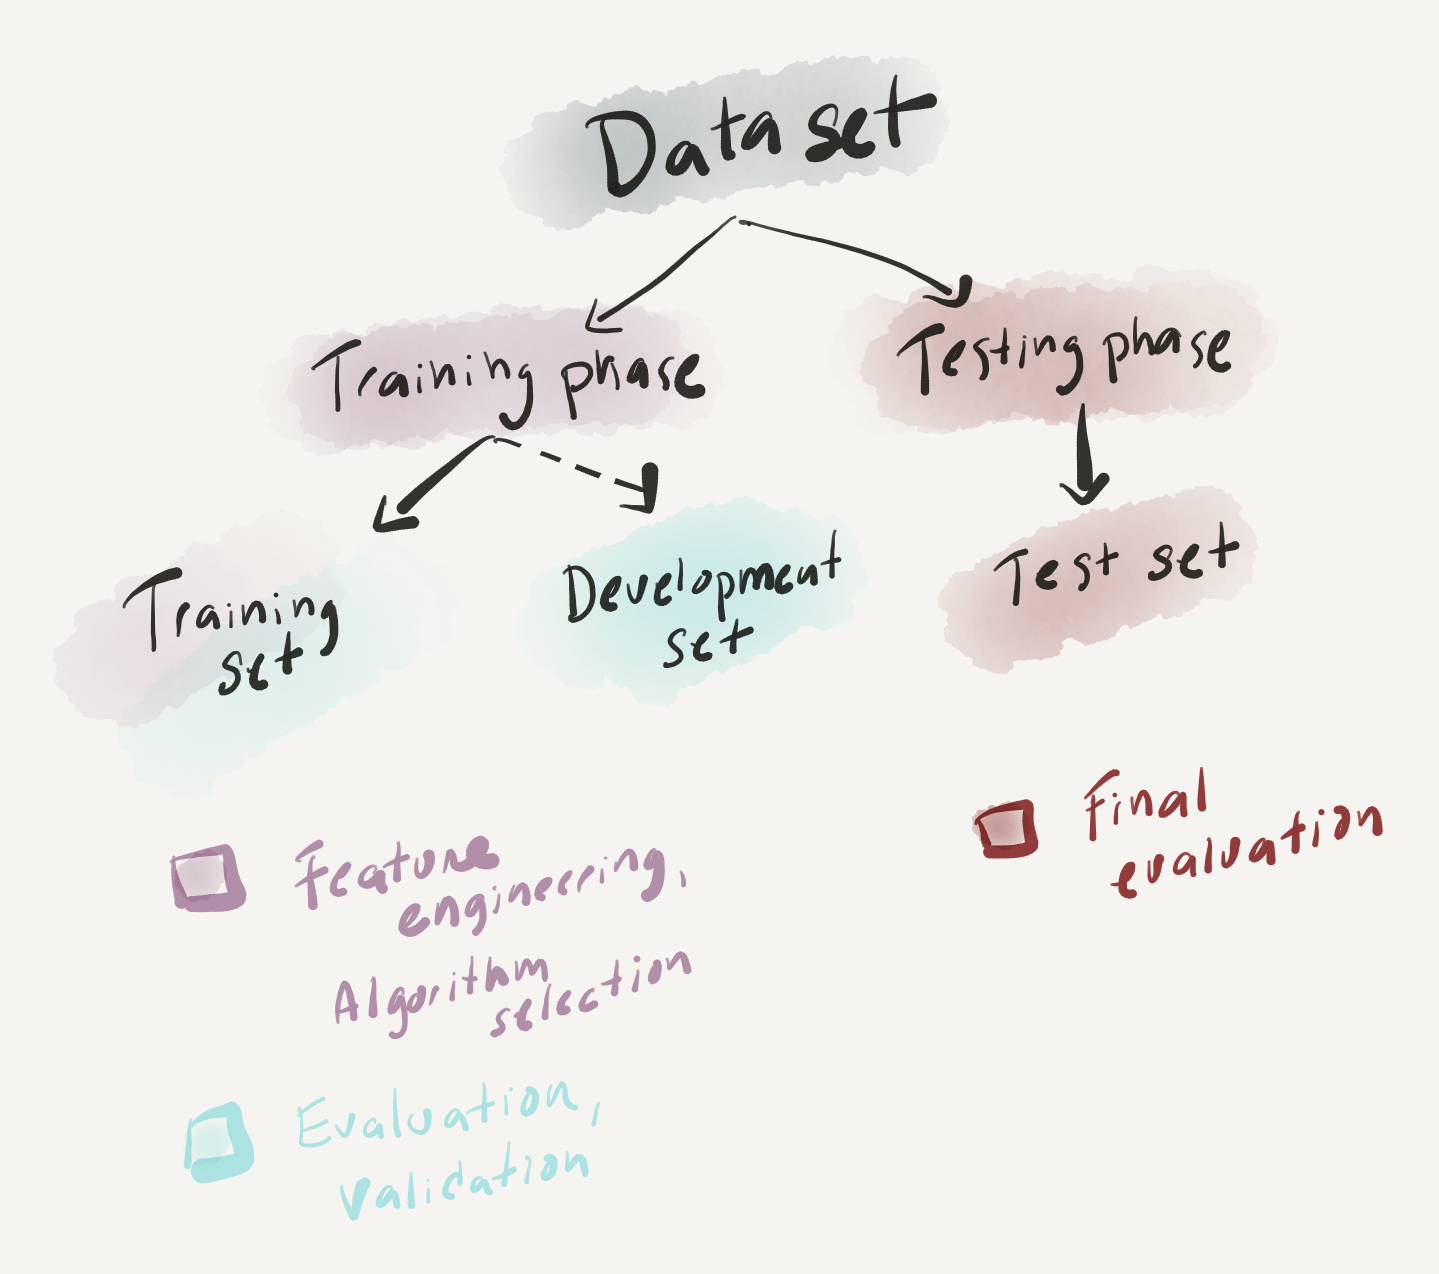 Data set
Training phase
Testing phase
Training
set
Development
set
Test set
Feature
engineering,
Algorithm
selection
Evaluation,
validation
Final
evaluation